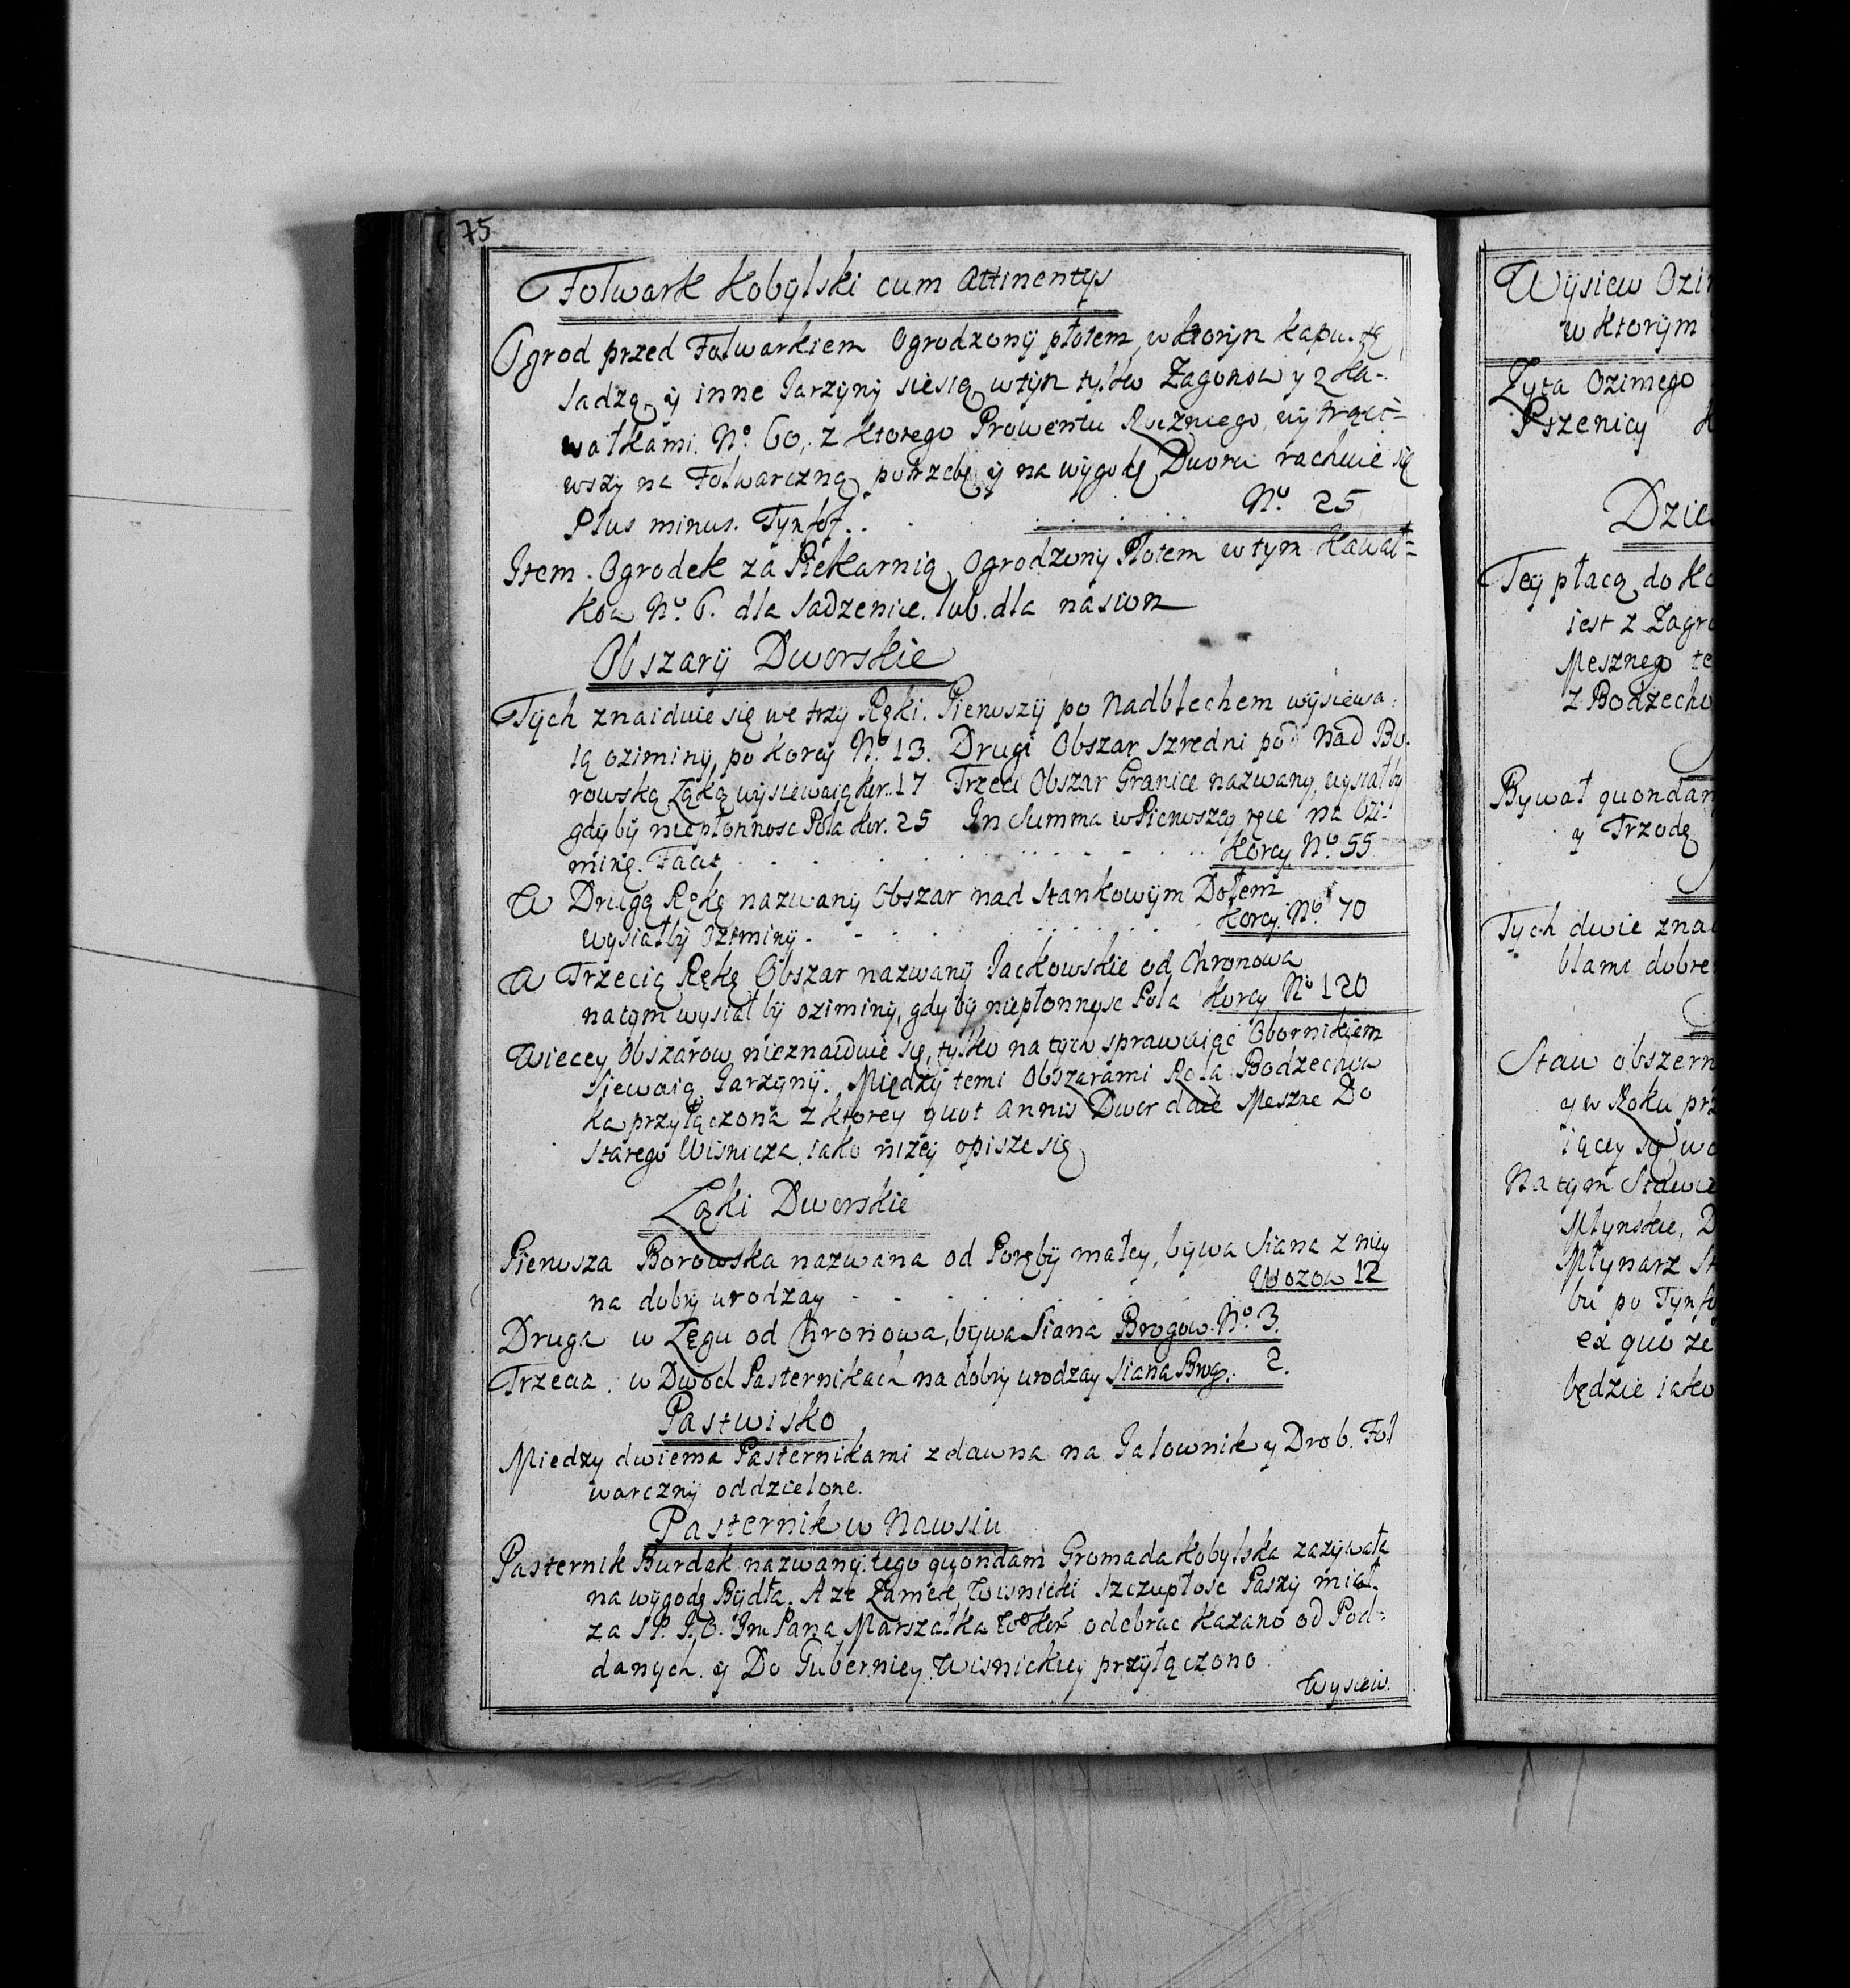 75
Folwark Kobylski cum Attinentys
Ogrod przed Folwarkiem Ogrodzony płotem, w ktorym Kapustę
sadzą, y inne Jarzyny sieią, w tym tylko Zagonow y z Ka-
wałkami. No. 60, z ktorego Prowentu Rocznego, wytrąci=
wszy na Folwarczną potrzebę y na wygodę Dworu rachuie się
Plus minus. Tynfof. . . . . . . . No. 25
Item. Ogrodek za Piekarnią Ogrodzony Płotem w tym Kawał=
kow No. 6. dla Sadzenice. lub. dla nasion
Obszary Dworskie
Tych znaiduie się we trzy Ręki. Pierwszy po Nadblechem wysiewa.
ią oziminy, po korcy No. 13. Drugi Obszar szredni pod Nad Bo.
rowską Łąką wysiewaią kor. 17 Trzeci Obszar Granice nazwany, wysiałby
gdy by niepłonnosc Pola kor. 25 In Summa w Pierwszey ręce na Ozi-
minę. Facit . . . . . . . . Korcy No. 55
W Drugą Rękę nazwany Obszar nad Stankowym Dołem
wysiałby Oziminy . . . . . . . Korcy No. 70
W Trzecią Rękę Obszar nazwany Jackowskie od Chronowa
na tym wysiał by oziminy, gdy by niepłonnosc Pola Korcy No 120
Wiecey Obszarow nieznaiduie się, tylko na tych sprawuiąc Obornikiem
siewaią Jarzyny. Między temi Obszarami Rola Bodzechow
ka przyłączona z ktorey quot annis Dwor daie Meszne Do
starego Wisnicza, iako niżey opisze się
Łąki Dworskie
Pierwsza Borowska nazwana od Poręby małey, bywa Siana z niey
na dobry urodzay . . . . . . . Wozow 12
Druga w Łęgu od Chronowa, bywa Siana Brogow. No. 3.
Trzecia. w Dwoch Pasternikach na dobry urodzay Siana Brog. 2.
Pastwisko
Miedzy dwiema Pasternikami zdawna na Jalownik y Drob. Fol
warczny oddzielone.
Pasternik w Nawsiu
Pasternik Burdak nazwany. tego quondam Gromada Kobylska zazywała
na wygodę Bydła. A ze Zamek Wisnicki szczupłosc Paszy miał.
za SP. J. O. Jm Pana Marszałka Wo Kor odebrac kazano od Pod=
danych. y Do Guberniey Wisnickiey przyłączono.
Wysiew.
Wysiew Ozi
w ktorym
Zyta Ozimego
Pszenicy K
Dzie
Tey płacą do Ko
iest z Zagro
Mesznego te
z Bodzecho
Bywał quondam
y Trzodę
Tych dwie zna
blami dobre
Staw obszern
y w Roku prz
iącey się wo
Na tym Stawie
Młynskie, D
Młynarz St
bu po Tynfo
ex quo ze
będzie iako